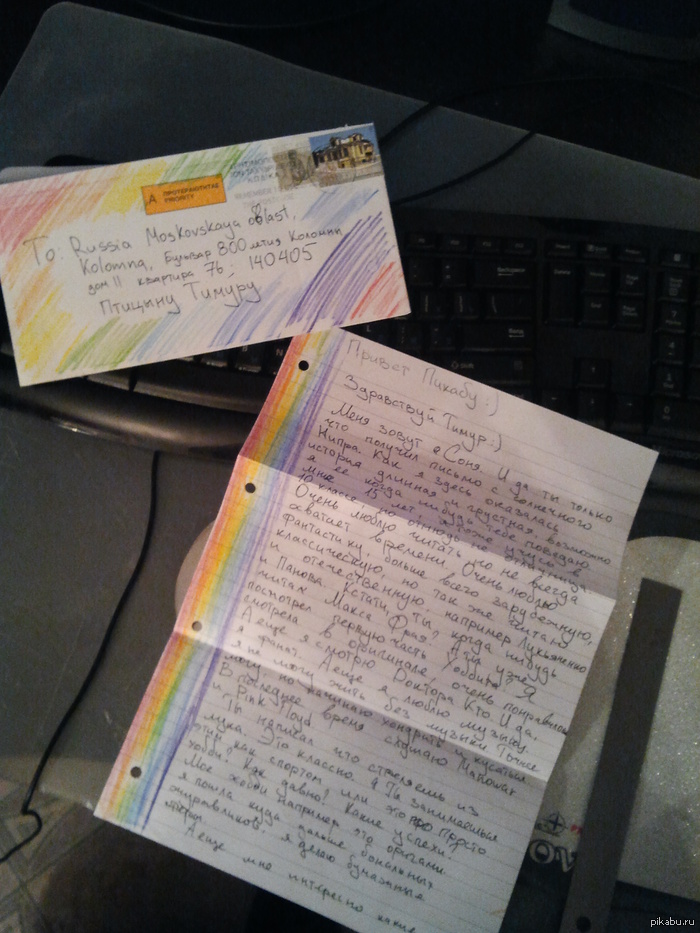 А ΠΡΟΤΕΡΑΙΟΤΗΤΑΣ
PRIORITY
To: Russia Moskovskaya oblast,
Kolomna, Бульвар 800 летия Коломны
дом 11 квартира 76, 140405
Птицыну Тимуру
Привет Пикабу :)
Здравствуй Тимур :)
Меня зовут Соня. И да ты только
что получил письмо с солнечного
Кипра. Как я здесь оказалась
история длинная и грустная, возможно
я ее когда нибудь тебе поведаю
Мне 15 лет, я тоже учусь в
10 классе, но отнюдь не отличница.
Очень люблю читать, но не всегда
хватает времени. Очень люблю
фантастику, больше всего зарубежную,
классическую, но так же читаю
и отечественную, например Лукьяненко
и Панова. Кстати, ты когда нибудь
читал Макса Фрая? А ты уже
посмотрел первую часть Хоббита? Я
смотрела в оригинале, очень понравилось
А еще я смотрю Доктора Кто. И да,
я фанат. А еще я люблю музыку.
Я не могу жить без музыки. Точнее
могу, но начинаю хандрить и кусаться
В последнее время слушаю Manowar
и Pink Floyd.
Ты написал что стреляешь из
лука. Это классно. А ты занимаешься
этим как спортом или это просто
хобби? Как давно? Какие успехи?
Мое хобби например это оригами.
я пошла куда дальше банальных
журавликов: я делаю бумажные
А еще мне интересно какие
pikabu.ru